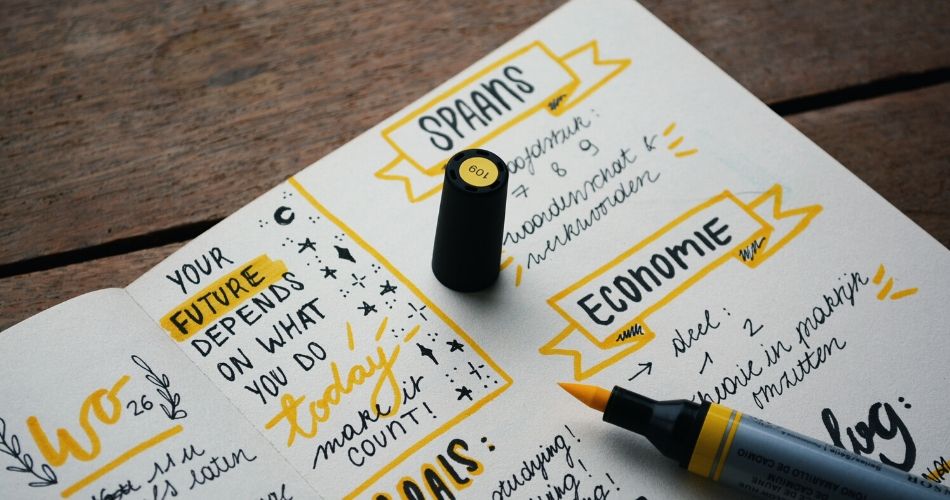 SPAANS
7 8 9
woordenschat &
werkwoorden
109
ECONOMIE
→ deel:
1 2
theorie in praktijk
omzetten
YOUR
FUTURE
DEPENDS
ON WHAT
YOU DO
today
make it
COUNT!
WO
26
11 u
laten
GOALS:
studying!
JAUNE
CADMIUM
AMARILLO DE CADMIO